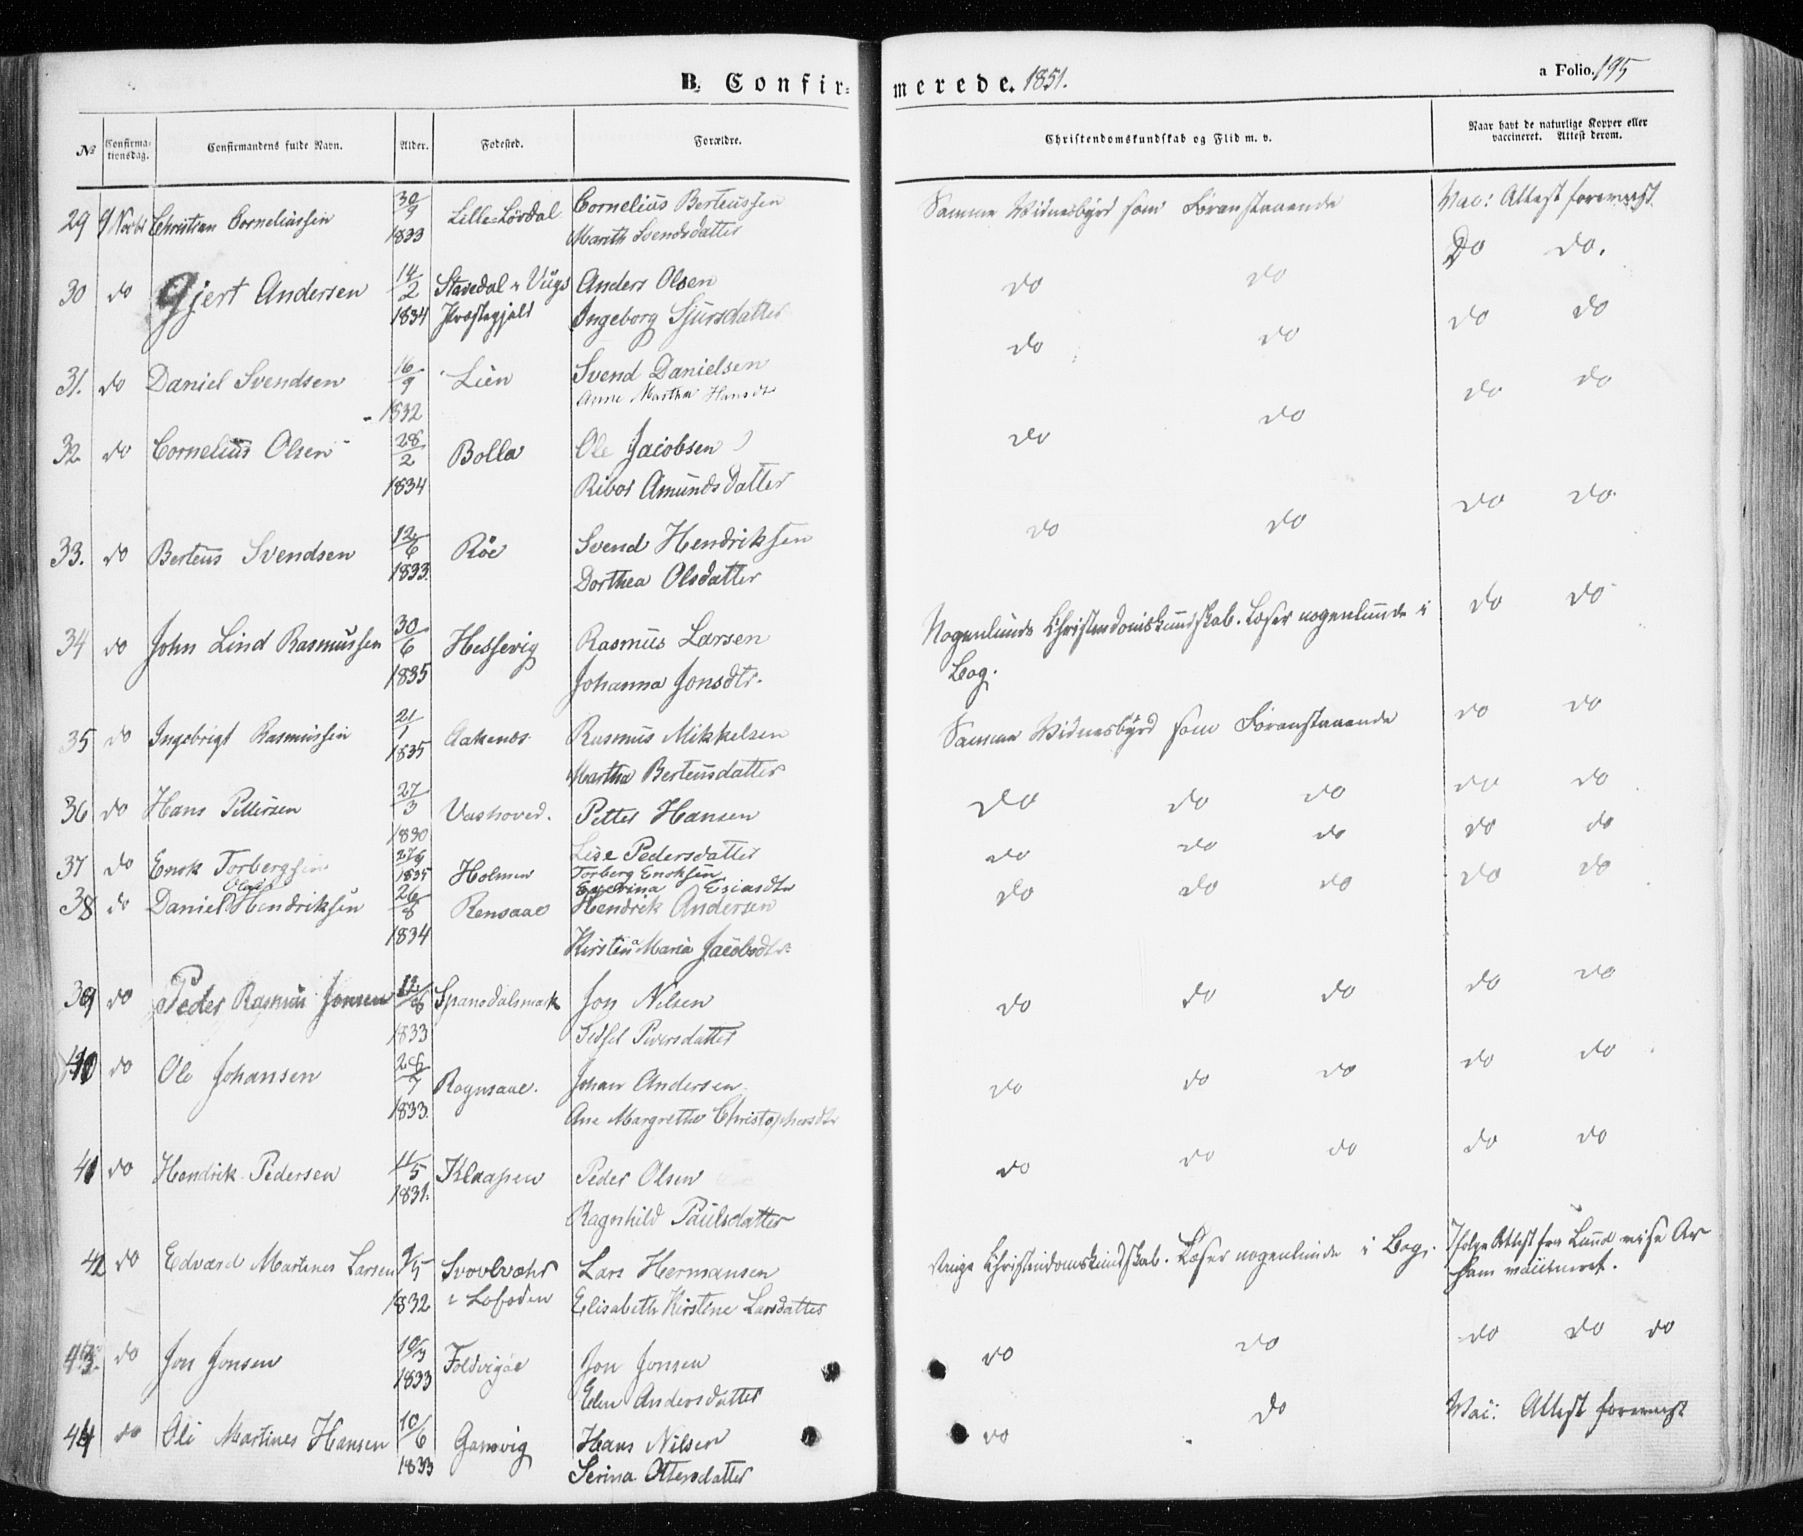 B. Confirmerede. 1851.
a Folio. 195
No
Confirmationsdag.
Confirmandens fulde Navn.
Alder.
Fødested.
Forældre.
Christendomskundskab og Flid m. v.
Naar havt de naturlige Kopper eller vaccineret. Attest derom.
29 9 Christian Corneliussen 30/9 1833 Lille-Lövdal Cornelius Berteussen Samme Vidnesbyrd som Foranstaaende Vac: Attest forevist
Marith Svendsdatter Do Do.
30 do Gjert Andersen 14/2 Anders Olsen do do
1834 Præstegjeld Ingeborg Sjursdatter do do
31. do Daniel Svendsen 16/9 Lien Svend Danielsen do do
1832 Anne Martha Hansdt do do
32 do Cornelius Olsen 28/2 Bolla Ole Jacobsen do do
1834 Ribor Amundsdatter do do
33. do Berteus Svendsen 12/6 Röe Svend Hendriksen do do
1833. Dorthea Olsdatter
34 do John Lind Rasmussen 30/6 Hessevig Rasmus Larsen Nogenlunde Christendomskundskab. Læser nogenlunde i do do
1835 Johanna Jonsdtr. Bog.
35 do Ingebrigt Rasmussen 21/1 1835 Aakenes Rasmus Mikkelsen Samme Vidnesbyrd som Foranstaaende do do
Martha Berteusdatter do do
36 do Hans Pettersen 27/3 Vashoved. Petter Hansen do do do
1830 Lise Pedersdatter do do
37 do Enok Torbergsen 27/9 1835 Holmen Torberg Enoksen do do do
Esiasdtr do do
38 do Daniel Hendriksen 26/8 Rensaae Hendrik Andersen do do do
1834 Kirstina Maria Jacobsdtr.
39 do Peder Rasmus Jonsen 12/8 Spansdalsmark Jon Nilsen do do do do do
1833 Sidsel Pedersdatter
40 do Ole Johansen 26/7 Rognsaae. Johan Andersen do do do do do
1833. Ane Margrethe Christophersdtr
41 do Hendrik Pedersen 11/5 Klaapen Peder Olsen do do do do do
1831. Ragnhild Paulsdatter
42 do Edvard Martines Larsen 9/5 Svovlvær Lars Hermansen Christendomskundskab. Læser nogenlunde i Bog. Ifølge Attest fra
1832 i Lofoden Elisabeth Kirstine Larsdatter ham vaccineret.
43. do Jon Jonsen 10/3 Foldvigöe Jon Jonsen do do do do do
1833 Elen Andersdatter
44 do Ole Martines Hansen 10/6 Gansvig Hans Nilsen do do Vac: Attest forevist
1833 Serina Ottersdatter